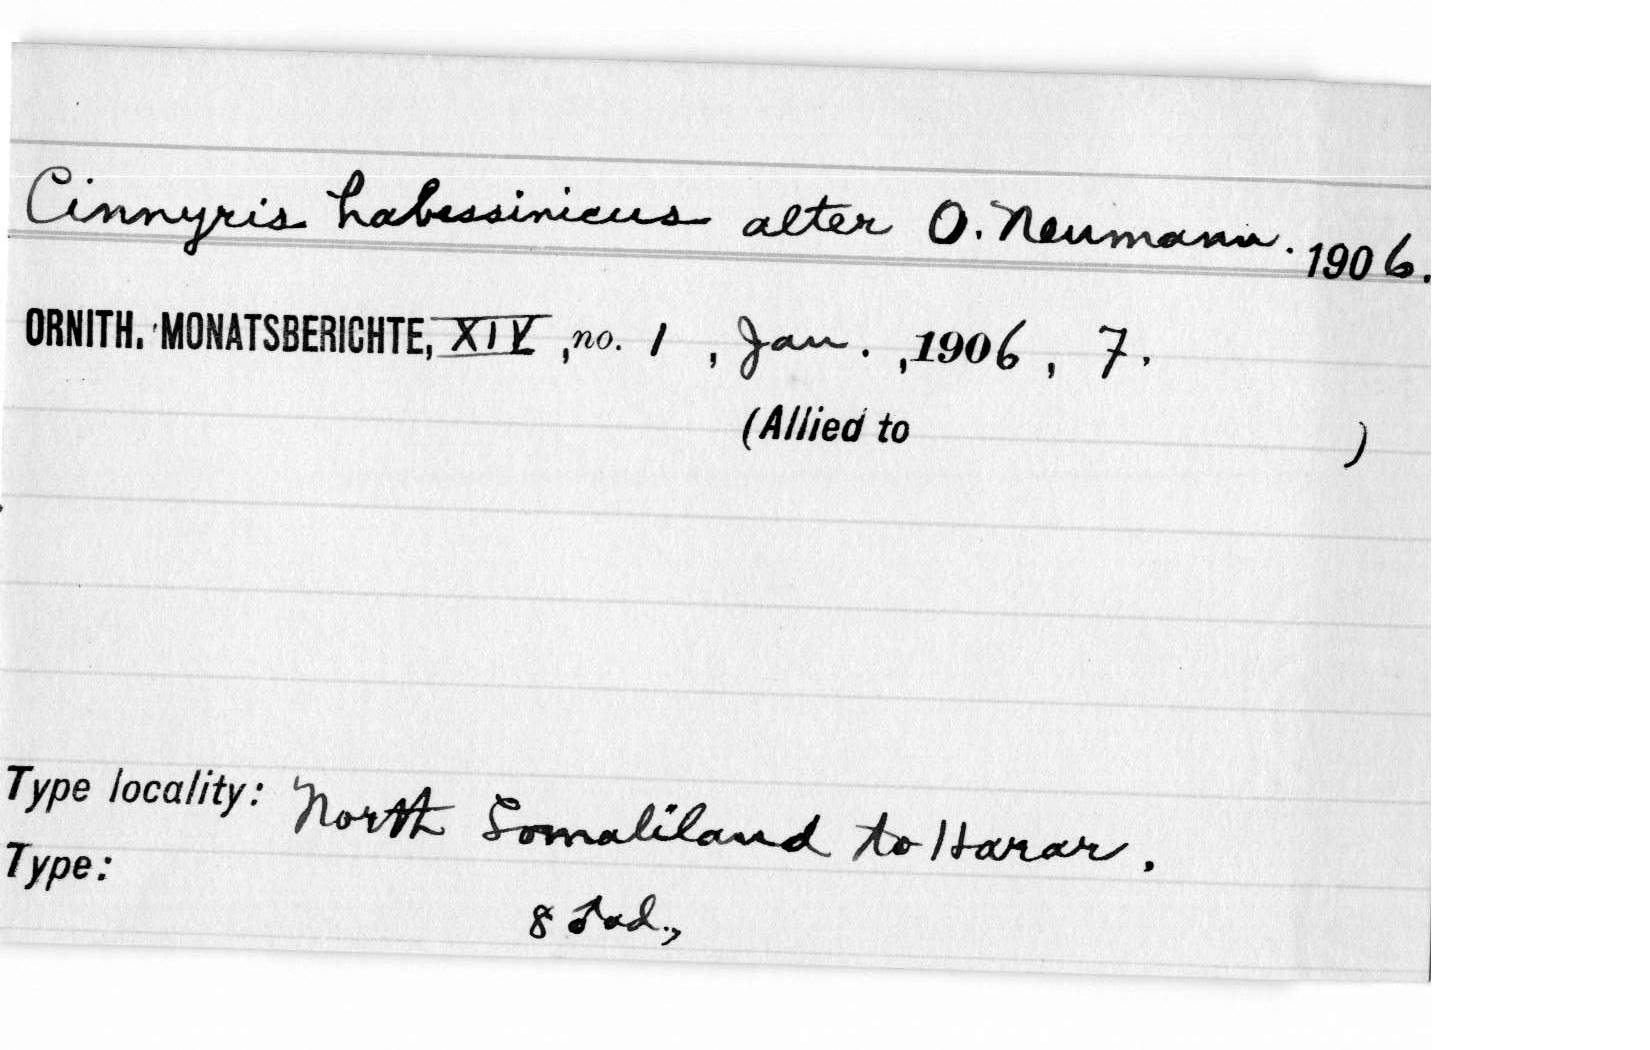 Cinnyris habessinicus alter O. Neumann. 1906.
ORNITH. MONATSBERICHTE, XIV, no. 1, Jan., 1906, 7.
(Allied to )
Type locality: North Somaliland to Harar.
Type:
8 ♂ ad.,